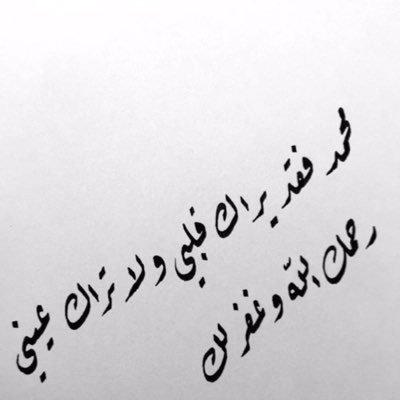 محمد فقد يراك قلبي ولا تراك عيني
رحمك الله وغفر لك